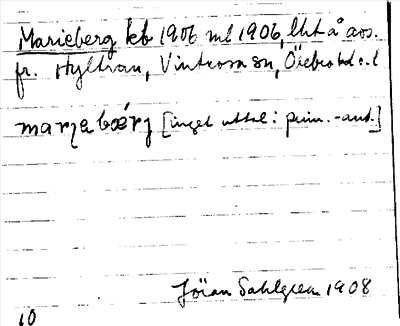 Marieberg kb 1906 ml 1906, lht å avs.
fr. Hyltvan, Vintrosa sn, Örebro
marjabærj [inget uttal: prim. -ant.]
Jöran Sahlgren 1908
10